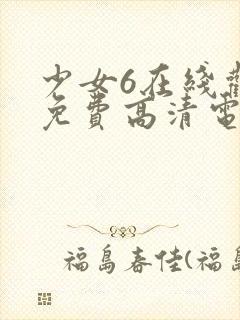 少女6在綫觀
免費高清電
福島春佳(福島